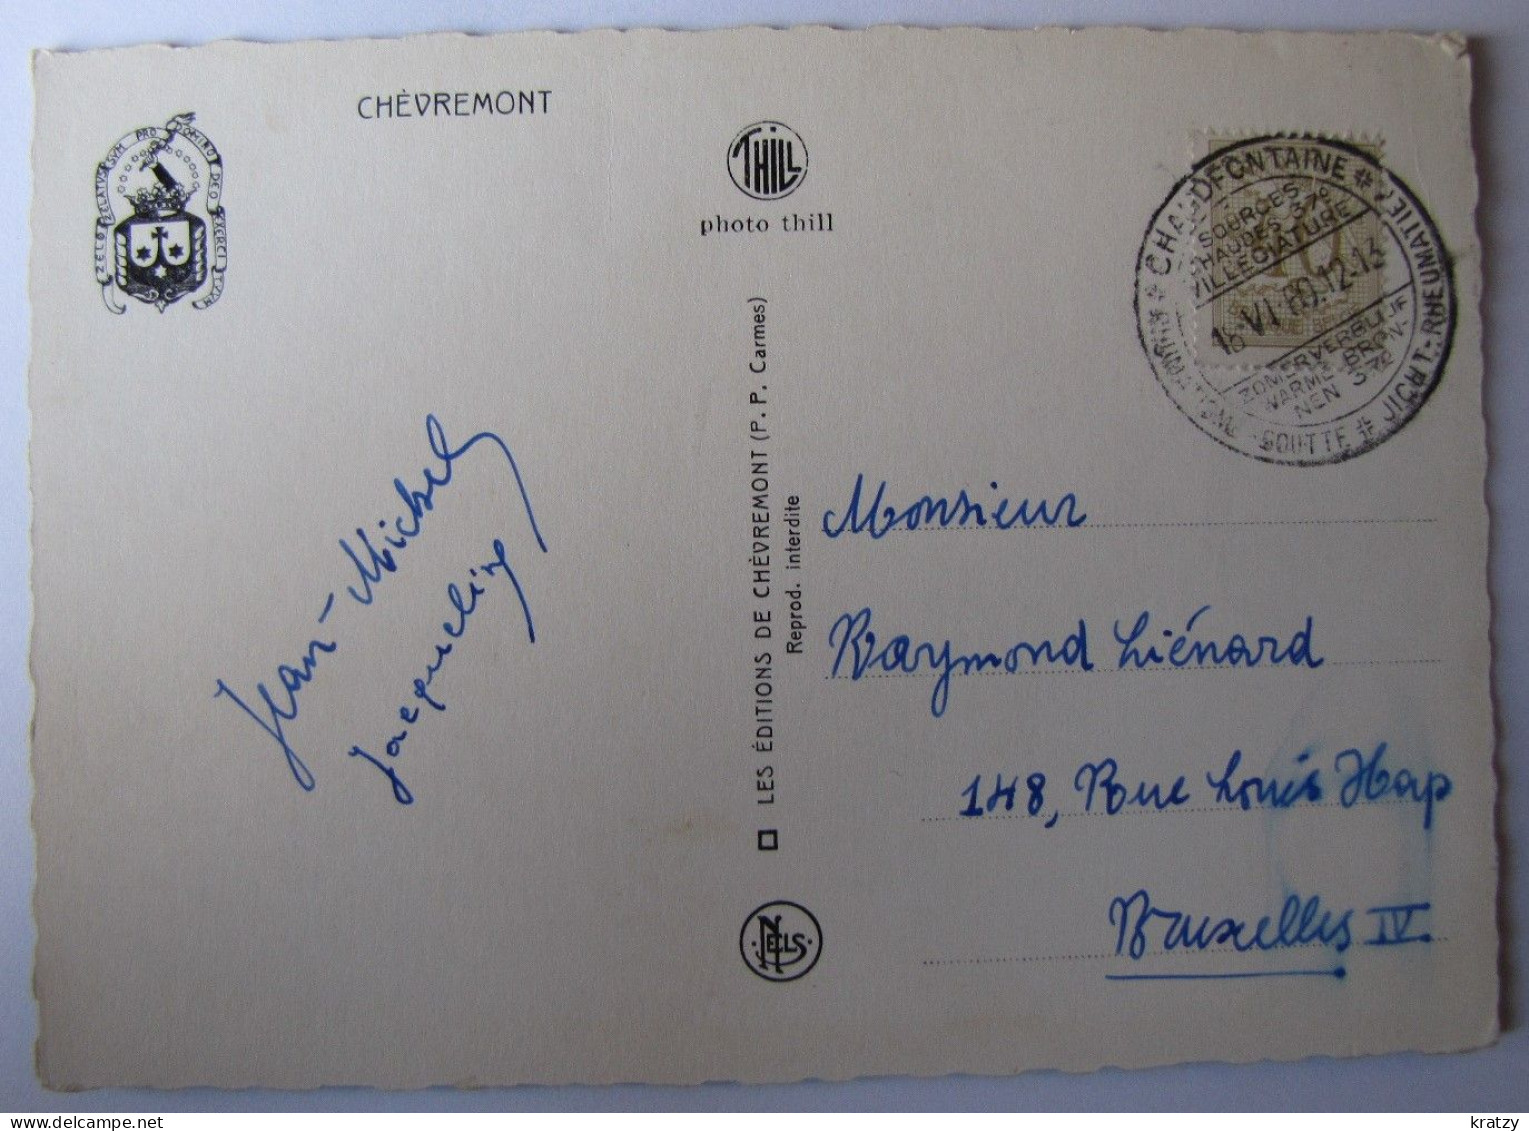 CHÈVREMONT
ZELO ZELATVS SVM PRO DOMINO DEO EXERCITVVM
THILL
photo thill
CHAUDFONTAINE
SOURCES
CHAUDES 37º
VILLEGIATURE
16-VI-60.12-13
ZOMERVERBLIJF
WARME BRON-
NEN 37º
GOUTTE
JICHT-RHEUMATIEK
Jean-Michel
Jacqueline
LES ÉDITIONS DE CHÈVREMONT (P. P. Carmes)
Reprod. interdite
NELS
Monsieur
Raymond Liénard
148, Rue Louis Hap
Bruxelles IV.
kratzy